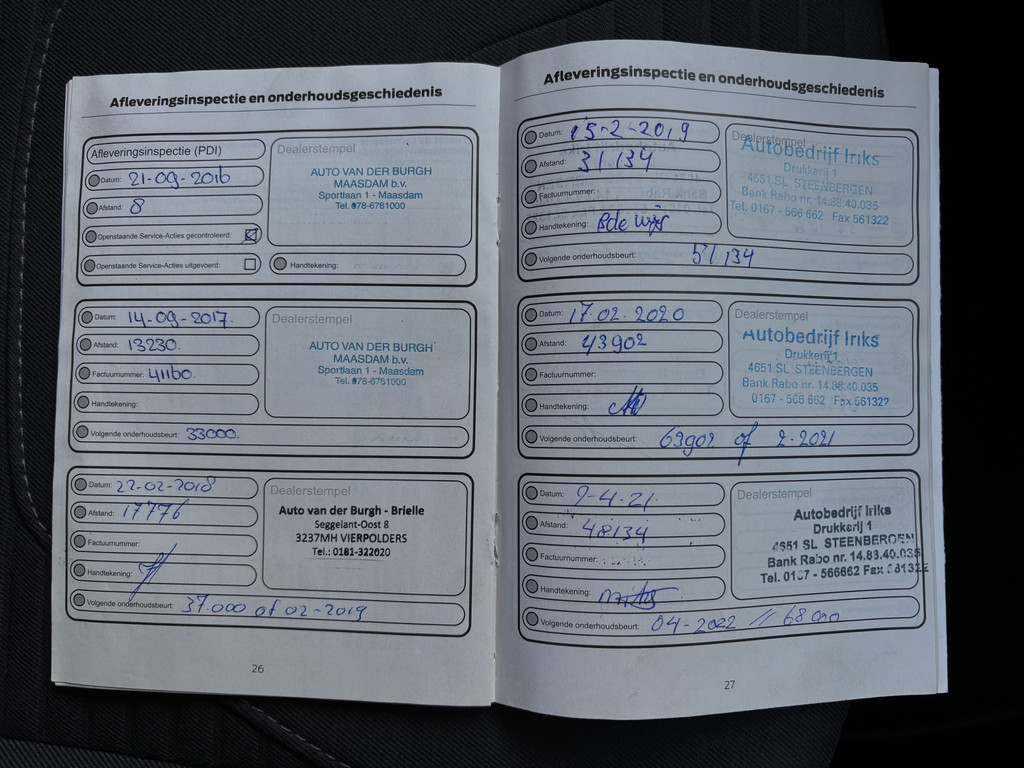 Afleveringsinspectie en onderhoudsgeschiedenis
Afleveringsinspectie (PDI)
Datum: 21-09-2016
Afstand: 8
Openstaande Service-Acties gecontroleerd:
Openstaande Service-Acties uitgevoerd:
Handtekening:
Dealerstempel
AUTO VAN DER BURGH
MAASDAM b.v.
Sportlaan 1 - Maasdam
Tel. 078-6761000
Datum: 14-09-2017.
Afstand: 13230.
Factuurnummer: 41160.
Handtekening:
Volgende onderhoudsbeurt: 33000.
Dealerstempel
AUTO VAN DER BURGH
MAASDAM b.v.
Sportlaan 1 - Maasdam
Tel. 078-6761000
Datum: 22-02-2018
Afstand: 17776
Factuurnummer:
Handtekening:
Volgende onderhoudsbeurt: 37.000 of 02-2019
Dealerstempel
Auto van der Burgh - Brielle
Seggelant-Oost 8
3237MH VIERPOLDERS
Tel.: 0181-322020
26
Afleveringsinspectie en onderhoudsgeschiedenis
Datum: 15-2-2019
Afstand: 31134
Factuurnummer:
Handtekening:
Volgende onderhoudsbeurt: 51134
Dealerstempel
Autobedrijf Iriks
Drukkerij 1
4651 SL STEENBERGEN
Bank Rabo nr. 14.88.40.035
Tel. 0167 - 566 662 Fax 561322
Datum: 17.02.2020
Afstand: 43902
Factuurnummer:
Handtekening:
Volgende onderhoudsbeurt: 63902 of 2-2021
Dealerstempel
Autobedrijf Iriks
Drukkerij 1
4651 SL STEENBERGEN
Bank Rabo nr. 14.88.40.035
0167 - 566 662 Fax 561322
Datum: 9-4-21
Afstand: 48134
Factuurnummer:
Handtekening:
Volgende onderhoudsbeurt: 04-2022 // 68000
Dealerstempel
Autobedrijf Iriks
Drukkerij 1
4651 SL STEENBERGEN
Bank Rabo nr. 14.88.40.035
Tel. 0167 - 566662 Fax 561322
27